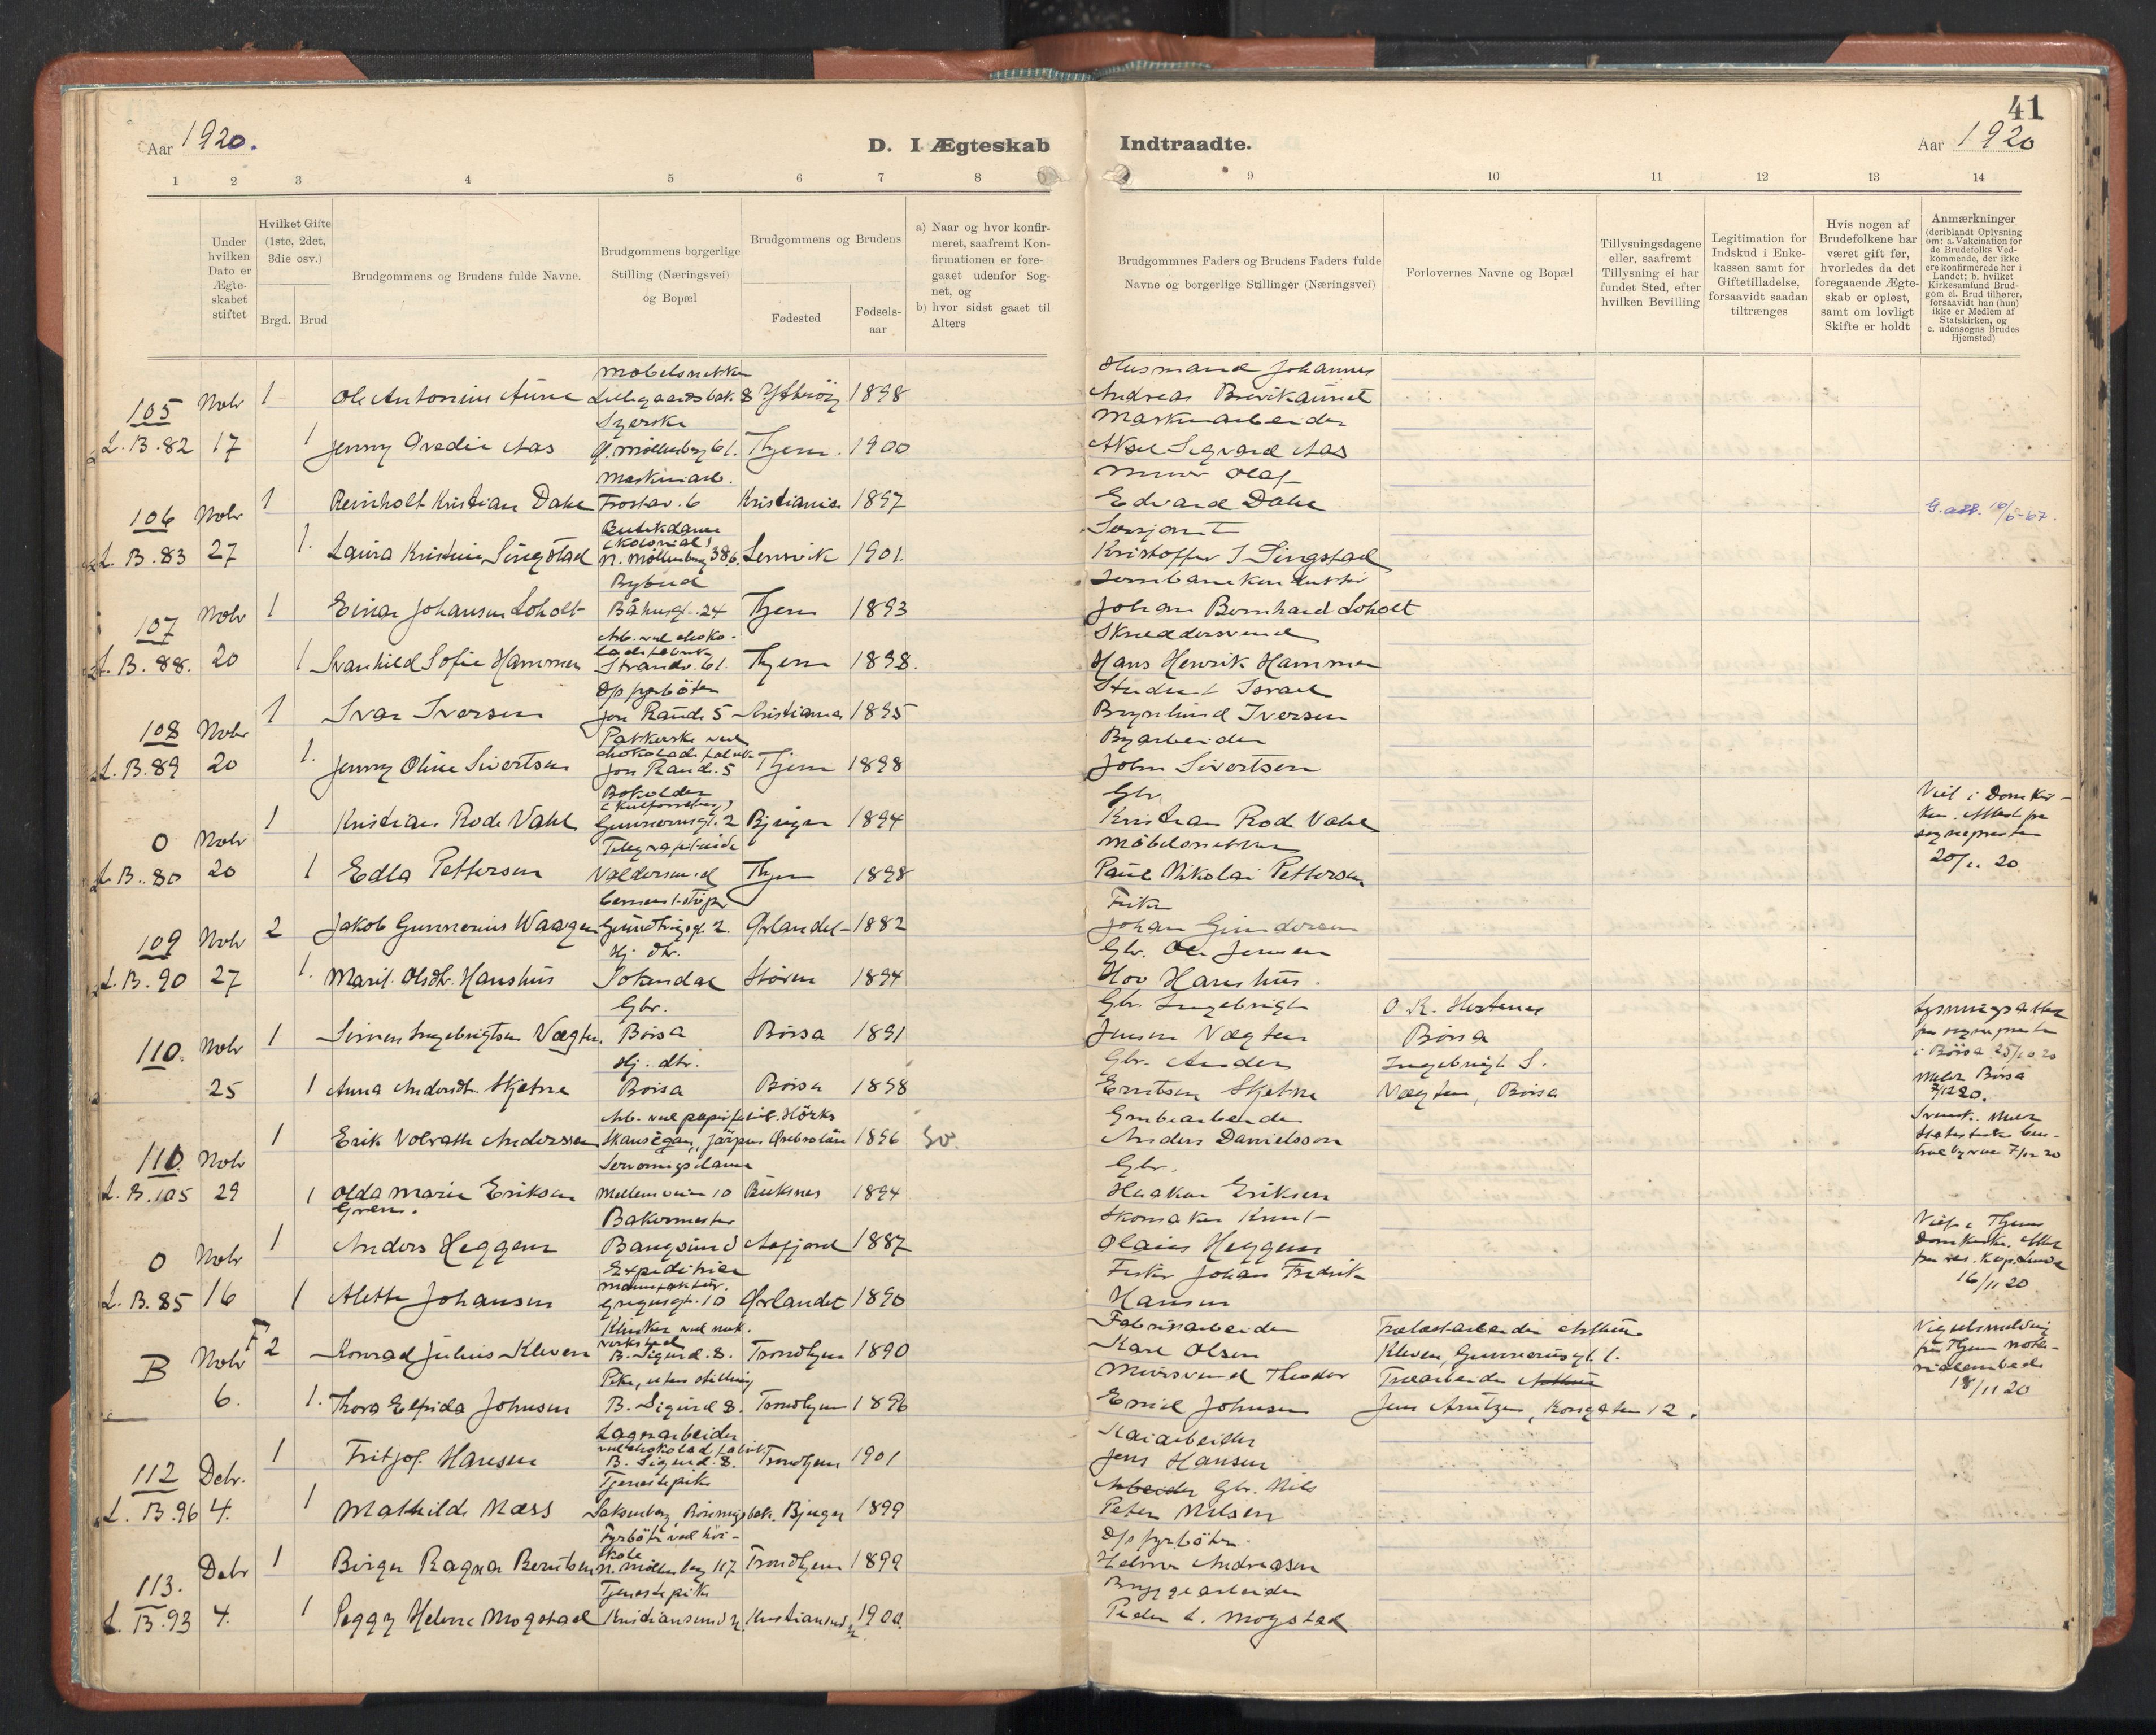 41
Aar 1920.
D. I Ægteskab
Indtraadte.
Aar 1920
1 2 3 4 5 6 7 8
9 10 11 12 13 14
Under hvilken Dato er Ægteskabet stiftet
Hvilket Gifte (1ste, 2det, 3die osv.)
Brgd. Brud
Brudgommens og Brudens fulde Navne.
Brudgommens borgerlige Stilling (Næringsvei) og Bopæl
Brudgommens og Brudens
Fødested
Fødsels-aar
a) Naar og hvor konfir-
meret, saafremt Kon-
firmationen er fore-
gaaet udenfor Sog-
net, og
b) hvor sidst gaaet til
Alters
Brudgommnes Faders og Brudens Faders fulde
Navne og borgerlige Stillinger (Næringsvei)
Forlovernes Navne og Bopæl
Tillysningsdagene
eller, saafremt
Tillysning ei har
fundet Sted, efter
hvilken Bevilling
Legitimation for
Indskud i Enke-
kassen samt for
Giftetilladelse,
forsaavidt saadan
tiltrænges
Hvis nogen af
Brudefolkene har
været gift før,
hvorledes da det
foregaaende Ægte-
skab er opløst,
samt om lovligt
Skifte er holdt
Anmærkninger
(deriblandt Oplysning
om: a. Vakcination for
de Brudefolks Ved-
kommende, der ikke
ere konfirmerede her i
Landet; b. hvilket
Kirkesamfund Brud-
gom el. Brud tilhører,
forsaavidt han (hun)
ikke er Medlem af
Statskirken, og
c. udensogns Brudes
Hjemsted)
Møbelsnekker
Husmand Johannes
105 Novbr 1 Ole Antonius Aune Lillegaardsbak. 8 Ytterøy 1898
Andreas Brevikaunet
Syerske
Maskinarbeider
L.B.82 17 1 Jenny Aas Ø. Møllenberg 61. Thjem. 1900
Aksel Sigvard Aas
Maskinarb.
Murer Olaf
106 Novbr 1 Reinholt Kristian Dahl Frostav. 6 Kristiania 1897
Edvard Dahl
Butikdame
(kolonial)
Sersjant
L.B.83 27 1. Laura Kristine Singstad N. Møllenberg 38b. Lensvik 1901.
Kristoffer J Singstad
Bybud
Jernbanekonduktør
107 Novbr 1 Einar Johansen Loholt Båhusgt. 24 Thjem 1893
Johan Bernhard Loholt
Arb. ved choko-
ladefabrik
Skræddersvend
L.B.88. 20 1 Svanhild Sofie Hammer Strandv. 61. Thjem 1898.
Hans Henrik Hammer
Op fyrbøter
Student Israel
108 Novbr 1 Ivar Iversen Jon Raudes 5 Kristiania 1895
Brynlund Iversen
Pakkerske ved
chokoladefabrik
Byarbeider
L.B.89 20 1. Jenny Oline Sivertsen Jon Raudes 5 Thjem 1898
John Sivertsen
Bokholder
Gbr.
0 Novbr 1 Kristian Rode Vahl Gunnerusgt. 2 Bjugn 1894
Kristian Rode Vahl
Viet i Domkir-
ken. Attest fra
sognepresten
20/11 20.
Møbelsnekker
L.B.80 20 1 Edla Pettersen Thjem 1898
Paul Nikolai Pettersen
Cementstøper
Fisker
109 Novbr 2 Jakob Gunnerius Waagen Grundtvigsgt. 2. Ørlandet 1882
Johan Gundersen
Hj. dtr.
Gbr. Ole Jensen
L.B.90 27 1. Marit Olsdtr. Hanshus Soknedal Støren 1894
Hov Hanshus.
Gbr.
Gbr. Ingebrigt
O. K. Hestenes
110. Novbr 1 Simen Ingebrigtsen Vægten. Børsa Børsa 1891
Jensen Vægten
Børsa
Lysningsattest
fra sognepresten
i Børsa 25/10 20
Meldt Børsa
7/12 20.
Hj. dtr.
Gbr. Anders
Ingebrigt S.
25 1 Anna Andersdtr. Skjetne Børsa Børsa 1898
Erntsen Skjetne
Vægten, Børsa
Grubearbeider
110. Novbr 1 Erik Volrath Anderssen Järpen Ørebro län 1896
Anders Danielsson
Serveringsdame
Gbr.
L.B.105 29 1 Olda Marie Eriksen Mellemveien 10 Buksnes 1894
Grem.
Haakon Eriksen
Bakermester
Skomaker Knut
0 Novbr 1 Anders Heggem Bangsund Aafjord 1887
Olaus Heggem
Viet i Thjems
Domkirke. Attest
fra res. kap. Lunde
16/11 20
Expeditrice
manufaktur.
Fisker Johan Fredrik
L.B.85 16 1 Alette Johansen 10 Ørlandet 1890
Hansen
Klinker ved mek.
verksted
Fabrikarbeider
B Novbr F 2 Konrad Julius Kleven B. Sigurds. 8. Trondhjem 1890
Karl Olsen
Kleven, Gunnerusgt. 1.
Vigselsmelding
fra Thjem nota-
rialembede
18/11 20
Pike, uten stilling
Mursvend Theodor
Træarbeider
6. 1. Thora Elfrida Johnsen B. Sigurds 8. Trondhjem 1896
Emil Johnsen
Jens Arntzen, Kongsgaten 12.
Lagerarbeider
ved chokoladefabrik
Kaiarbeider
112 Debr. 1 Fritjof Hansen B. Sigurds. 8. Trondhjem 1901
Jens Hansen
Tjenestepike
Arbeider Gbr. Nils
L.B.96 4. 1 Mathilde Næss Bjugn 1899
Peter Nilsen
Fyrbøter ved høi-
skole
Op fyrbøter
113. Debr 1 Birger Ragnar Berntsen N. Møllenberg 117 Trondhjem 1899
Helmer Andreasen
Tjenestepike
Bryggearbeider
L.B.93 4. 1 Peggy Helene Mogstad Kristiansund N. Kristiansund N. 1900.
Peder L. Mogstad